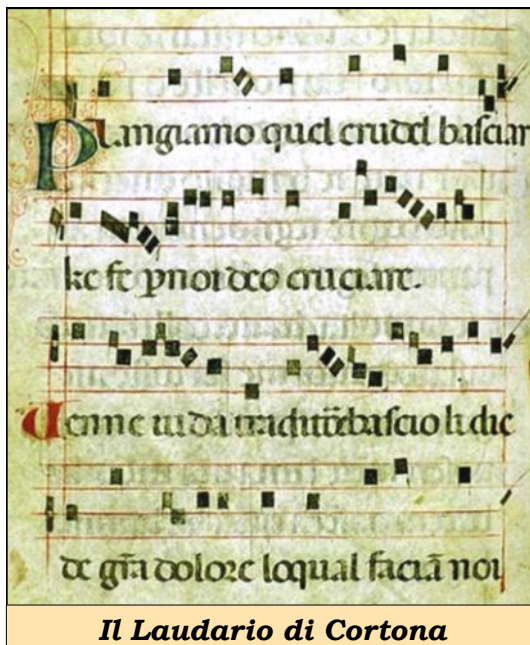 Plangiamo quel crudel basciar
ke fe p̄ noi deo cruciare.
Venne iuda traditore bascio li die
de grā dolore loqual faciā noi
Il Laudario di Cortona